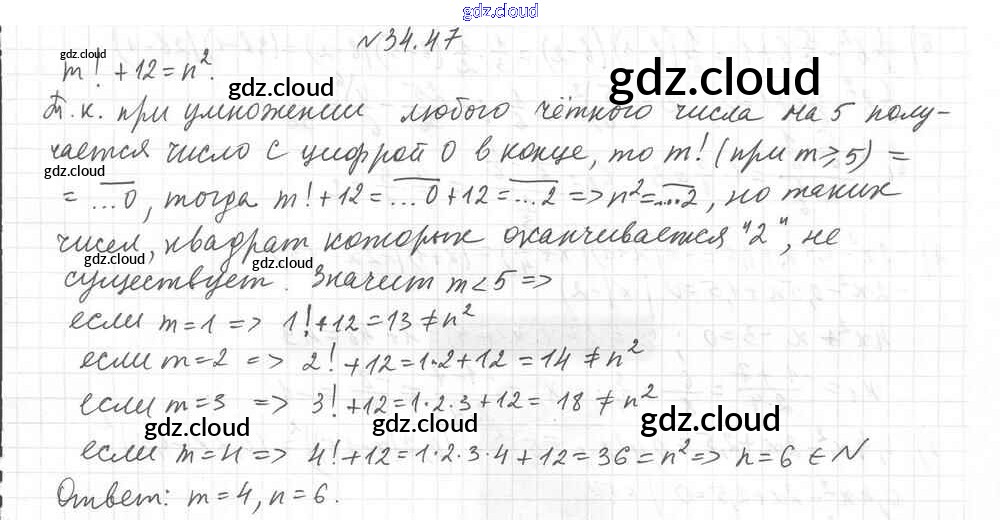 gdz.cloud
№34.47
gdz.cloud
m! + 12 = n².
gdz.cloud
Т.к. при умножении любого чётного числа на 5 полу-
gdz.cloud
чается число с цифрой 0 в конце, то m! (при m ⩾ 5) =
gdz.cloud
= ...0, тогда m! + 12 = ...0 + 12 = ...2 => n² = ...2, но таких
чисел, квадрат которых оканчивается "2", не
gdz.cloud gdz.cloud
существует. Значит m < 5 =>
если m = 1 => 1! + 12 = 13 ≠ n²
если m = 2 => 2! + 12 = 1·2 + 12 = 14 ≠ n²
если m = 3 => 3! + 12 = 1·2·3 + 12 = 18 ≠ n²
gdz.cloud gdz.cloud gdz.cloud
если m = 4 => 4! + 12 = 1·2·3·4 + 12 = 36 = n² => n = 6 ∈ N
Ответ: m = 4, n = 6.